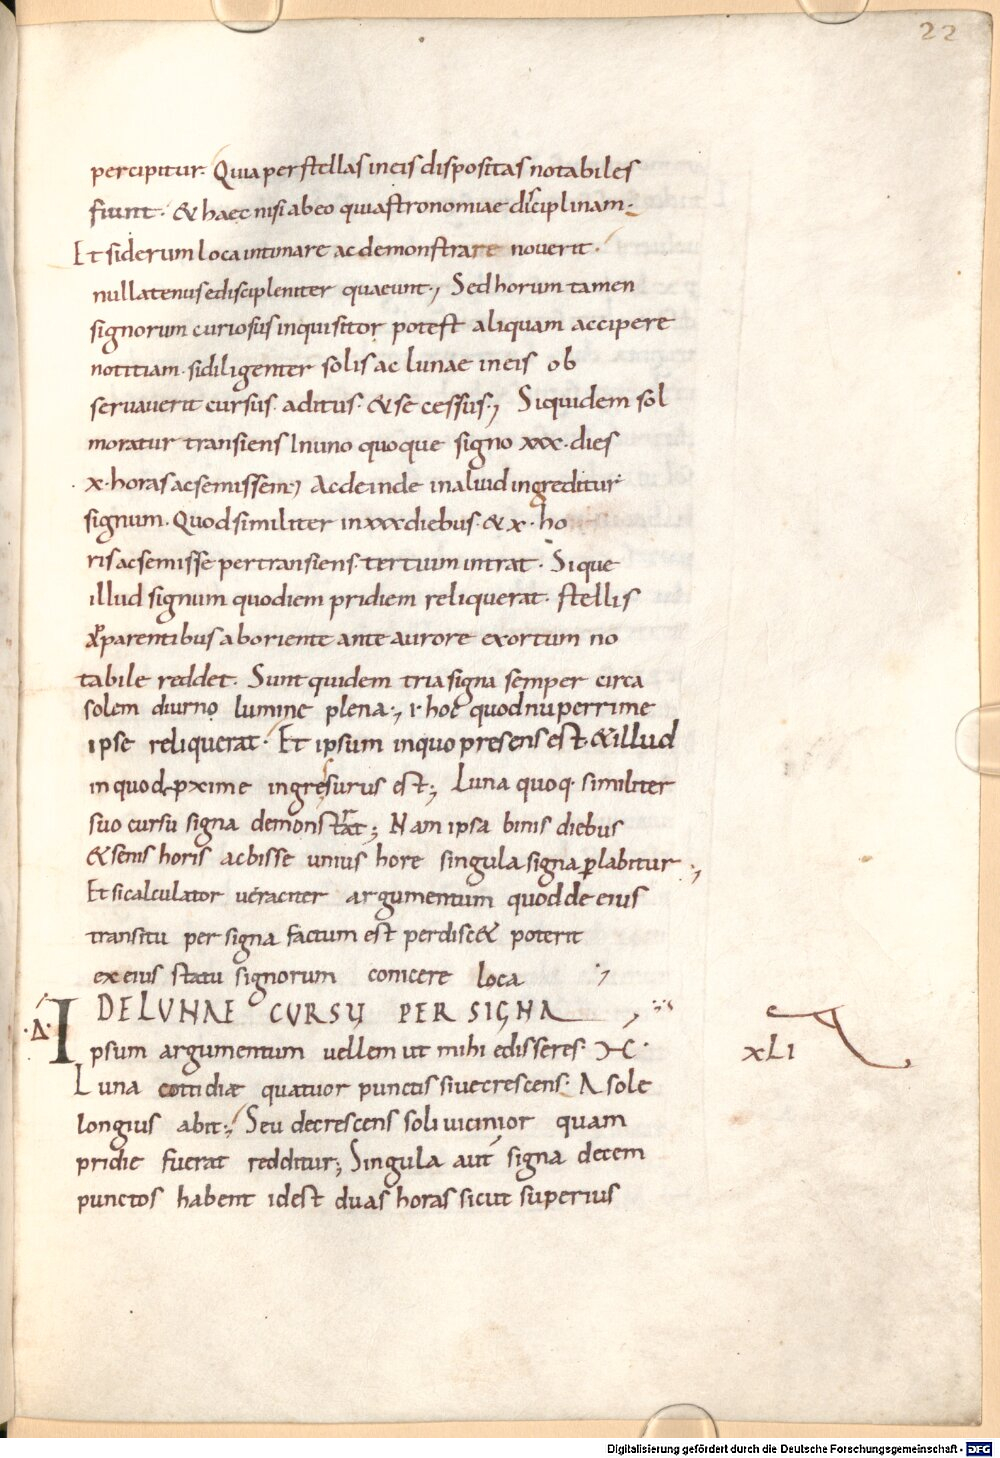 22
percipitur. Quia per stellas in eis dispositas notabiles
fiunt. & haec nisi ab eo qui astronomiae disciplinam.
Et siderum loca intimare ac demonstrare noverit.
nullatenus ediscipleniter quaeunt; Sed horum tamen
signorum curiosus inquisitor potest aliquam accipere
notitiam. si diligenter solis ac lunae in eis ob
servaverit cursus. aditus. & secessus; Siquidem sol
moratur transiens In uno quoque signo xxx. dies
x. horas ac semissem; Ac deinde in aliud ingreditur
signum. Quod similiter in xxx diebus. & x. ho
ris ac semisse pertransiens. tertium intrat. Sique
illud signum quod iem pridiem reliquerat. stellis
apparentibus ab oriente ante aurore exortum no
tabile reddet. Sunt quidem tria signa semper circa
solem diurno lumine plena; i. hoc quod nuperrime
ipse reliquerat. Et ipsum in quo presens est. & illud
in quod pxime ingresurus est; Luna quoq. similiter
suo cursu signa demonstrat; Nam ipsa binis diebus
& senis horis ac bisse unius hore singula signa plabitur;
Et si calculator veraciter argumentum quod de eius
transitu per signa factum est perdisc& poterit
ex eius statu signorum conicere loca;
DE LUNAE CURSU PER SIGNA
·Δ· Ipsum argumentum vellem ut mihi edisseres.
xLI
Luna cottidiae quatuor punctis sive crescens. A sole
longius abit; Seu decrescens soli vicinior quam
pridie fuerat redditur; Singula aut signa decem
punctos habent id est duas horas sicut superius
Digitalisierung gefördert durch die Deutsche Forschungsgemeinschaft - DFG